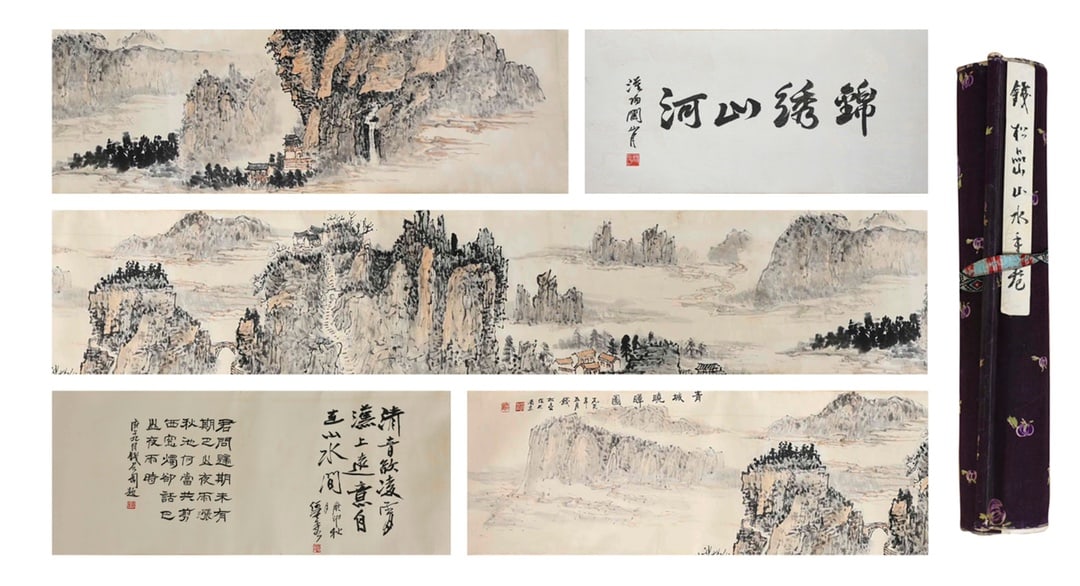 錦绣山河
錢松嵒山水手卷
青城曉 圖
清音欲凌霄
漢上遠意自
在山水間
君問歸期未有
期巴山夜雨漲
秋池何當共剪
西窗燭卻話巴
山夜雨時
錢君匋題